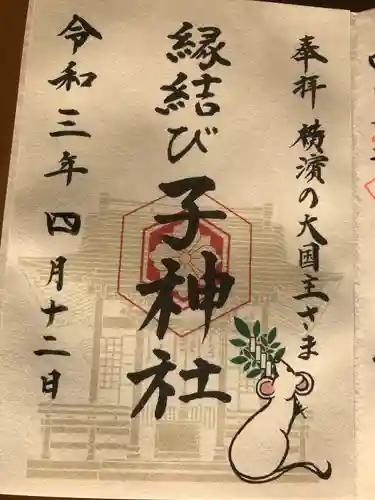 奉拝 横濱の大国主さま
縁結び 子神社
令和三年四月十二日